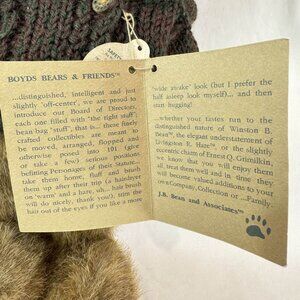 BOYDS BEARS & FRIENDS™
...distinguished, intelligent and just
slightly "off-center", we are proud to
introduce our Board of Directors,
each one filled with "the right stuff";
bean bag "stuff", that is... these finely
crafted collectibles are meant to
be moved, arranged, flopped and
otherwise posed into 101 (give
or take a few) serious positions
befitting Personages of their Stature...
take them home, fluff and brush
them up after their trip (a hairdryer
on "warm" and a hare, uh... hair brush
will do nicely, thank you!), trim the
hair out of the eyes if you like a more
"wide awake" look (but I prefer the
half asleep look myself)... and then
start hugging!
...whether your tastes run to the
distinguished nature of Winston B.
Bean™, the elegant understatement of
Livingston R. Hare™, or the slightly
eccentric charm of Ernest Q. Grimilkin,
we know that you will enjoy them
all, treat them well and in time they
will become valued additions to your
own Company, Collection or ...Family.
J.B. Bean and Associates™